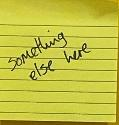 something
else here